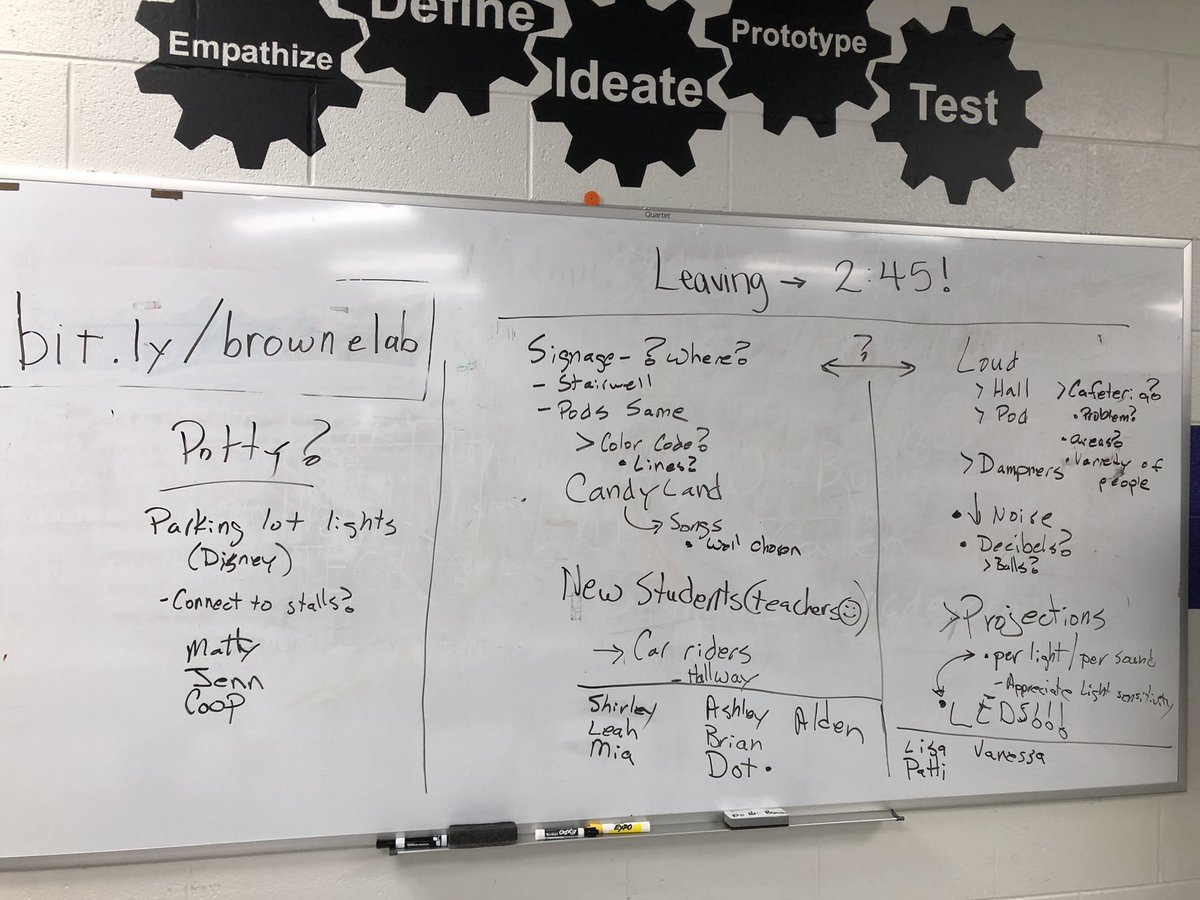 Empathize
Define
Ideate
Prototype
Test
Quartet
Leaving → 2:45!
bit.ly/brownelab
Potty?
Parking lot lights
(Disney)
- Connect to stalls?
Matty
Jenn
Coop
Signage - ? Where?
- Stairwell
- Pods Same
> Color Code?
• Lines?
CandyLand
↳ Songs
•
New Students (teachers☺)
→ Car riders
- Hallway
Shirley
Leah
Mia
Ashley
Brian
Dot.
Alden
?
Loud
> Hall
> Pod
> Cafeteria?
• Problem?
• areas?
• Variety of
people
> Dampners
• ↓ Noise
• Decibels?
> Balls?
> Projections
• per light/per sound
- Appreciate Light sensitivity
• LEDS!!!
Lisa
Patti
Vanessa
EXPO